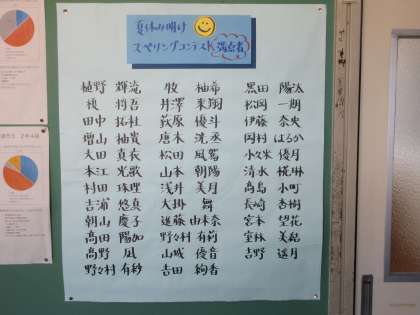 夏休み明け
スペリングコンテスト 満点者
植野 輝流
榎 将吾
田中 拓杜
増山 柚貴
大田 真衣
本江 光歌
村田 珠理
吉浦 悠真
朝山 慶子
高田 陽加
高野 凪
野々村 有紗
牧 柚希
井澤 來翔
荻原 優斗
唐木 洸丞
松田 風駕
山本 朝陽
浅井 美月
大掛 舞
進藤 由木奈
野々村 有莉
山城 優音
吉田 絢香
黒田 陽汰
松岡 一期
伊藤 奈央
岡村 はるか
小久米 優月
清水 椛琳
高島 小町
長崎 杏樹
宮本 望花
室林 美結
吉野 遥月